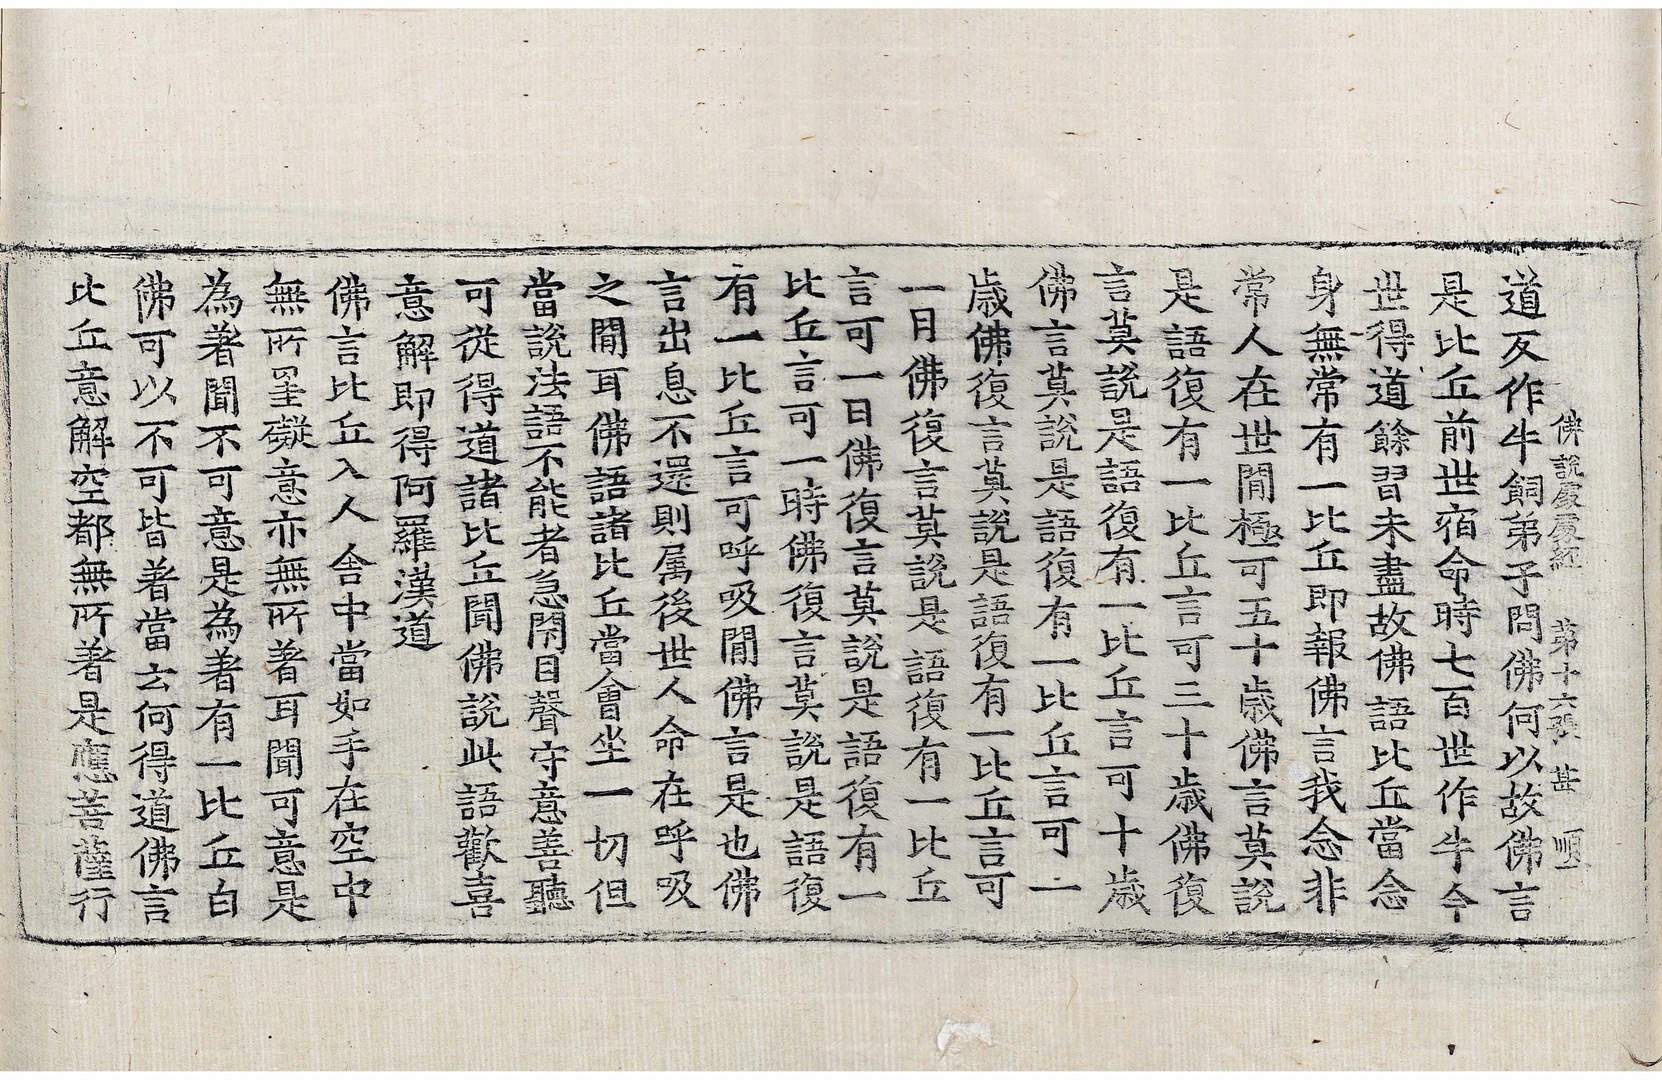 佛說處處經 第十六張 甚 順
道反作牛飼弟子問佛何以故佛言
是比丘前世宿命時七百世作牛今
世得道餘習未盡故佛語比丘當念
身無常有一比丘即報佛言我念非
常人在世閒極可五十歲佛言莫說
是語復有一比丘言可三十歲佛復
言莫說是語復有一比丘言可十歲
佛言莫說是語復有一比丘言可一
歲佛復言莫說是語復有一比丘言可
一月佛復言莫說是語復有一比丘
言可一日佛復言莫說是語復有一
比丘言可一時佛復言莫說是語復
有一比丘言可呼吸閒佛言是也佛
言出息不還則属後世人命在呼吸
之閒耳佛語諸比丘當會坐一切但
當說法語不能者急閇目聲守意善聽
可從得道諸比丘聞佛說此語歡喜
意解即得阿羅漢道
佛言比丘入人舍中當如手在空中
無所罣礙意亦無所著耳聞可意是
為著聞不可意是為著有一比丘白
佛可以不可皆著當云何得道佛言
比丘意解空都無所著是應菩薩行